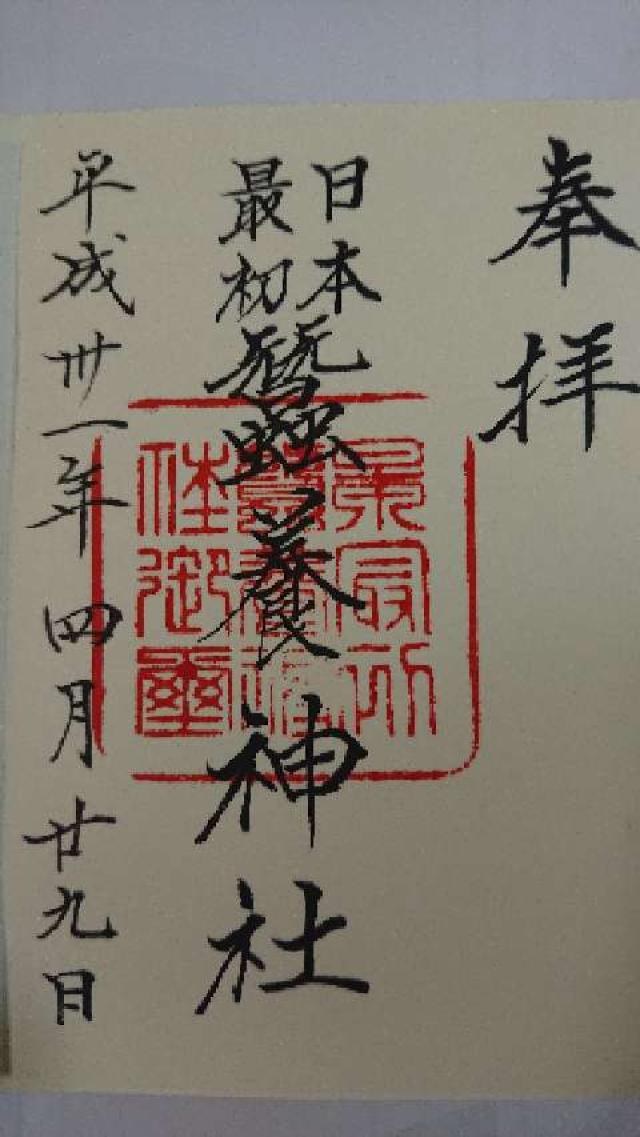 奉拝
日本
最初
蠶養神社
平成卅一年四月廿九日
日本最初
蠶養神
社御璽